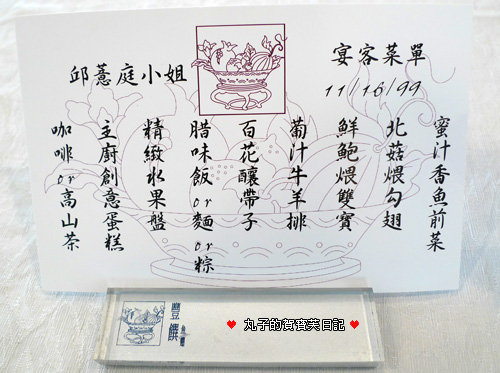 宴客菜單
11/16/99
邱薏庭小姐
蜜汁香魚前菜
北菇煨勾翅
鮮鮑煨雙寶
葡汁牛羊排
百花釀帶子
腊味飯or麵or粽
精緻水果盤
主廚創意蛋糕
咖啡or高山茶
豐饌
♥ 丸子的賀寶芙日記 ♥